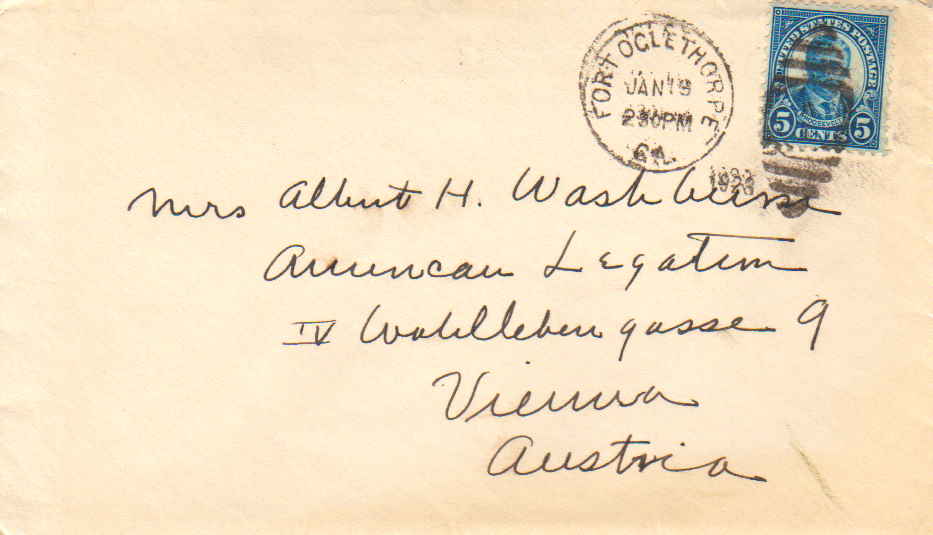 FORT OGLETHORPE
JAN 19
230PM
GA.
UNITED STATES POSTAGE
ROOSEVELT
5 CENTS 5
Mrs Albert H. Washburn
American Legation
IV Wohllebengasse 9
Vienna
Austria